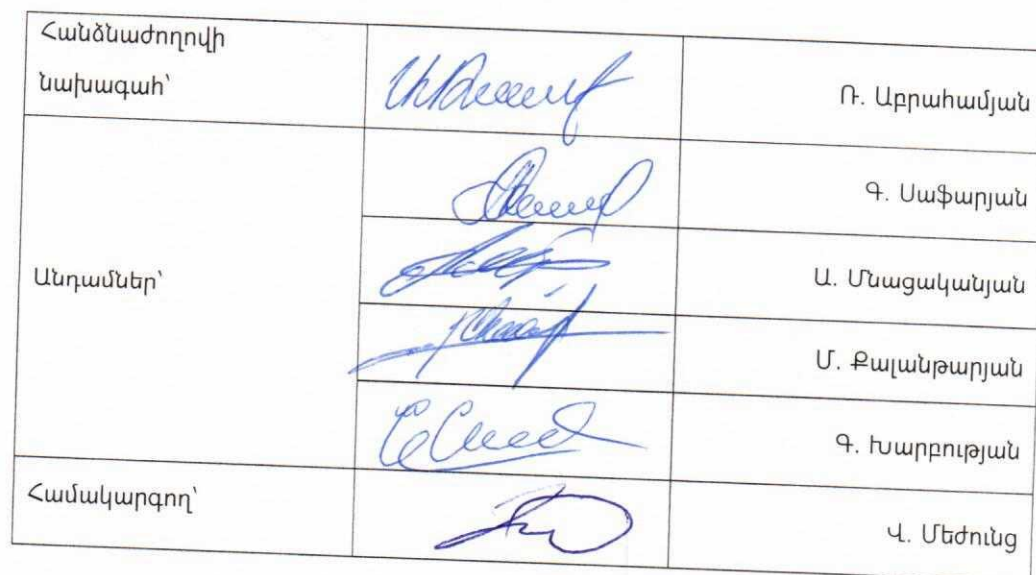 Հանձնաժողովի
նախագահ՝
Ռ. Աբրահամյան
Գ. Սաֆարյան
Անդամներ՝
Ա. Մնացականյան
Մ. Քալանթարյան
Գ. Խարբության
Համակարգող՝
Վ. Մեժունց